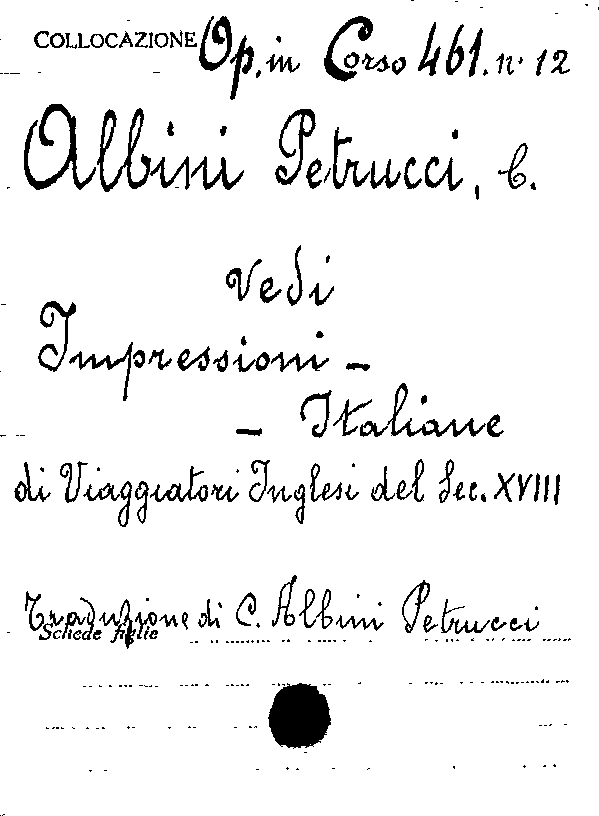 COLLOCAZIONE Op. in Corso 461. n. 12
Albini Petrucci, C.
Vedi
Impressioni -
- Italiane
di Viaggiatori Inglesi del Sec. XVIII
Traduzione di C. Albini Petrucci
Schede figlie